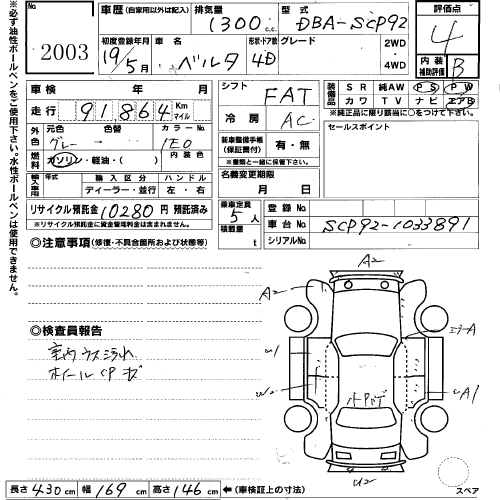 ※必ず油性ボールペンをご使用下さい。水性ボールペンは使用できません。
No. 2003
車歴 (自家用以外は記入)
排気量 1300 c.c.
型式 DBA-SCP92
評価点 4
初度登録年月 19/5月
車名 ベルタ
形状・ドア数 4D
グレード
2WD・4WD
内装補助評価 B
車検 年 月
シフト FAT
装備品 SR 純AW PS PW
カワ TV ナビ エアB
※純正品に限り該当に○をつけて下さい。
走行 91,864 Km マイル
冷房 AC
セールスポイント
外色 元色 グレー 色替 カラーNo. 1E0
新車整備手帳(保証書付) 有・無
※書類と一緒に保管下さい。
燃料 ガソリン・軽油・( ) 内装色
名義変更期限 月 日
輸入車用 年式 輸入区分 ハンドル
ディーラー・並行 左・右
リサイクル預託金 10280 円 預託済み
※リサイクル預託金に資金管理料金は含まれません。
乗車定員 5人
積載量 t
登録No.
車台No. SCP92-1033891
シリアルNo.
◎注意事項 (修復・不具合箇所および状態等)
A2
A2
エラーA
U1
W2
UA1
U2
◎検査員報告
室内ウス汚れ
ホイールCPキズ
長さ 430 cm 幅 169 cm 高さ 146 cm ←(車検証上の寸法)
スペア